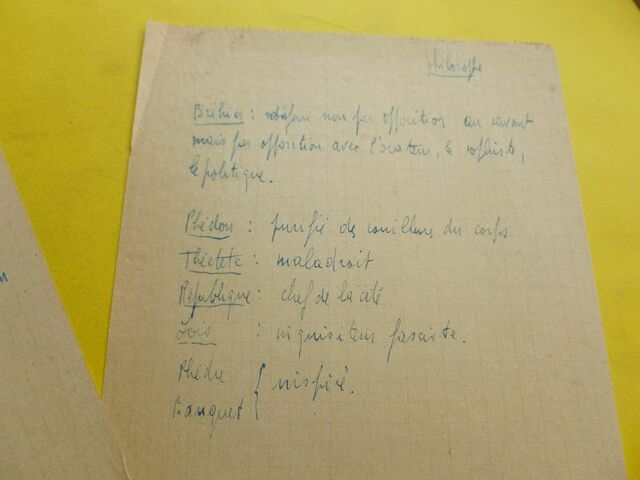 Philosophe
Bréhier : défini non par opposition au savant
mais par opposition avec l'orateur, le sophiste,
le politique.
Phédon : purifié des souillures du corps
Théétète : maladroit
République : chef de la cité
Lois : inquisiteur fasciste.
Phèdre
Banquet { inspiré.